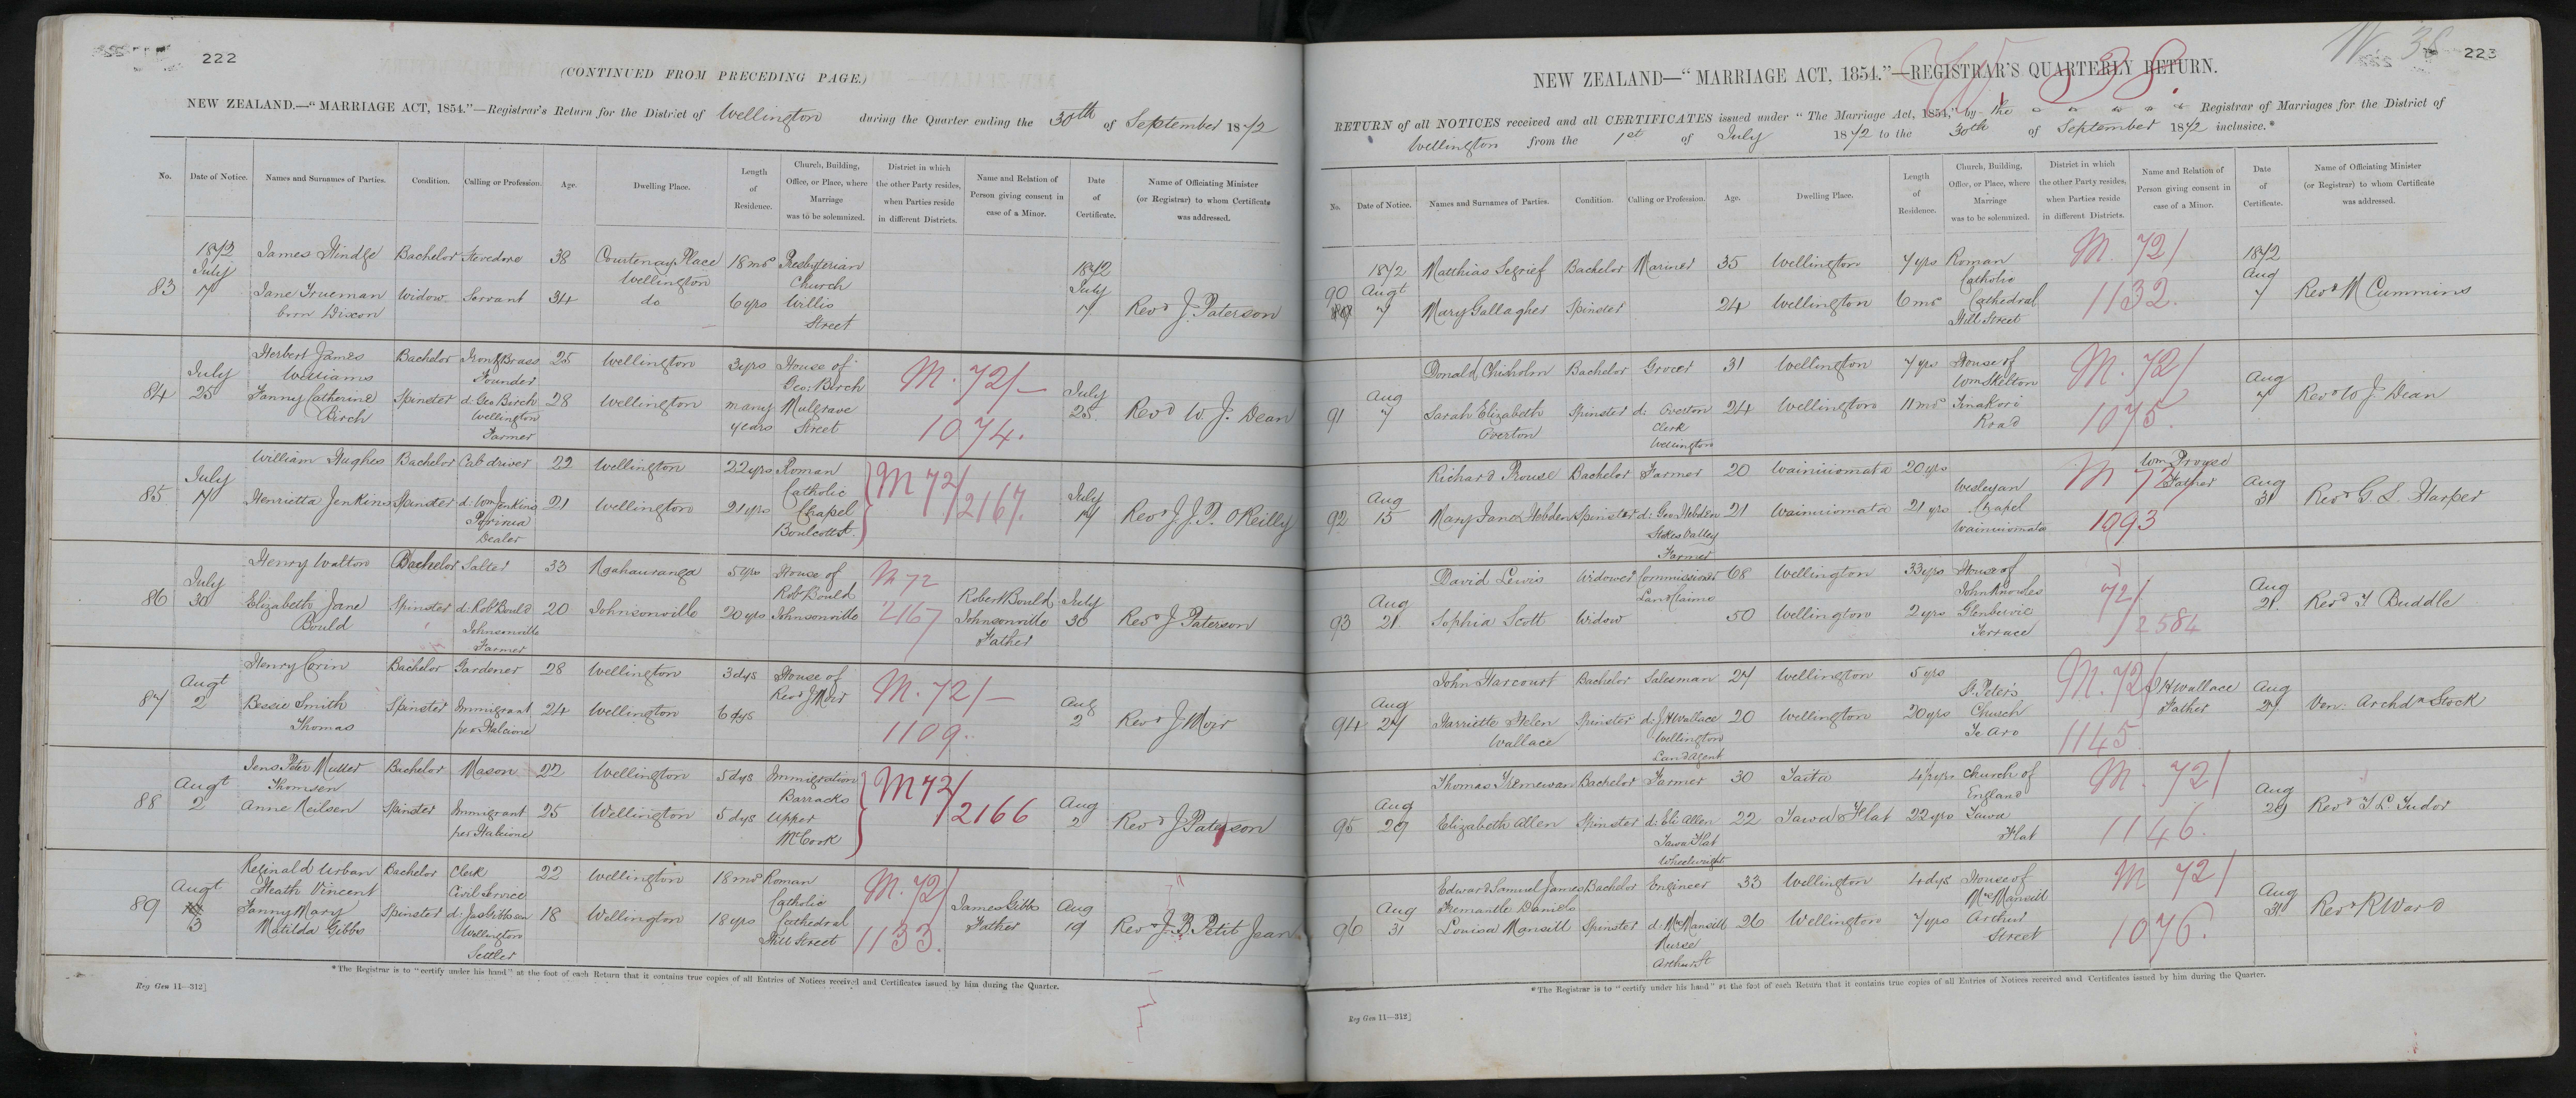 222
(CONTINUED FROM PRECEDING PAGE.)
NEW ZEALAND.—"MARRIAGE ACT, 1854."—Registrar's Return for the District of Wellington during the Quarter ending the 30th of September 1872
No. Date of Notice. Names and Surnames of Parties. Condition. Calling or Profession. Age. Dwelling Place. Length of Residence. Church, Building, Office, or Place, where Marriage was to be solemnized. District in which the other Party resides, when Parties reside in different Districts. Name and Relation of Person giving consent in case of a Minor. Date of Certificate. Name of Officiating Minister (or Registrar) to whom Certificate was addressed.
83 1872 July 7 James Hindge Bachelor Stevedore 38 Courtenay Place Wellington 18 mos Presbyterian Church Willis Street 1872 July 7 Revd J. Paterson
Jane Trueman born Dixon Widow Servant 34 do 6 yrs
84 July 25 Herbert James Williams Bachelor Iron & Brass Founder 25 Wellington 3 yrs House of Geo: Birch Mulgrave Street M. 72/- 1074. July 25 Revd W. J. Dean
Fanny Catherine Birch Spinster d: Geo Birch Wellington Farmer 28 Wellington many years
85 July 17 William Hughes Bachelor Cab driver 22 Wellington 22 yrs Roman Catholic Chapel Boulcott St. M 72/2167. July 17 Revd J. J. P. O'Reilly
Henrietta Jenkins Spinster d: Wm Jenkins Dealer 21 Wellington 21 yrs
86 July 30 Henry Walton Bachelor Salter 33 Ngahauranga 5 yrs House of Robt Bould Johnsonville M 72 2167 Robert Bould Johnsonville Father July 30 Revd J Paterson
Elizabeth Jane Bould Spinster d: Robt Bould Johnsonville Farmer 20 Johnsonville 20 yrs
87 Augt 2 Henry Crin Bachelor Gardener 28 Wellington 3 dys House of Revd J Moir M. 72/- 1109. Aug 2 Revd J Moir
Bessie Smith Thomas Spinster Immigrant per Halcione 24 Wellington 6 dys
88 Augt 2 Jens Peter Muller Thomsen Bachelor Mason 22 Wellington 5 dys Immigration Barracks Upper Mt Cook M 72/2166 Aug 2 Revd J Paterson
Anne Neilsen Spinster Immigrant per Halcione 25 Wellington 5 dys
89 Augt 3 Reginald Urban Heath Vincent Bachelor Clerk Civil Service 22 Wellington 18 mos Roman Catholic Cathedral Hill Street M. 72/ 1133. James Gibbs Father Aug 19 Revd J. B. Petit Jean
Fanny Mary Matilda Gibbs Spinster d: Jas Gibbs Wellington Settler 18 Wellington 18 yrs
*The Registrar is to "certify under his hand" at the foot of each Return that it contains true copies of all Entries of Notices received and Certificates issued by him during the Quarter.
Reg Gen 11—312]
W 38 223
W 38.
NEW ZEALAND—"MARRIAGE ACT, 1854."—REGISTRAR'S QUARTERLY RETURN.
RETURN of all NOTICES received and all CERTIFICATES issued under "The Marriage Act, 1854," by the Registrar of Marriages for the District of
Wellington from the 1st of July 1872 to the 30th of September 1872 inclusive.*
No. Date of Notice. Names and Surnames of Parties. Condition. Calling or Profession. Age. Dwelling Place. Length of Residence. Church, Building, Office, or Place, where Marriage was to be solemnized. District in which the other Party resides, when Parties reside in different Districts. Name and Relation of Person giving consent in case of a Minor. Date of Certificate. Name of Officiating Minister (or Registrar) to whom Certificate was addressed.
90 1872 Augt 7 Matthias Segrief Bachelor Mariner 35 Wellington 7 yrs Roman Catholic Cathedral Hill Street M. 72/ 1132. 1872 Aug 7 Revd M Cummins
Mary Gallagher Spinster 24 Wellington 6 mos
91 Aug 7 Donald Chisholm Bachelor Grocer 31 Wellington 7 yrs House of Wm Skilton Tinakori Road M. 72/ 1075. Aug 7 Revd W J. Dean
Sarah Elizabeth Overton Spinster d: Overton Clerk Wellington 24 Wellington 11 mos
92 Aug 15 Richard Prouse Bachelor Farmer 20 Wainuiomata 20 yrs Wesleyan Chapel Wainuiomata M 72/ 1093 Wm Prouse Father Aug 31 Revd G S. Harper
Mary Jane Hebden Spinster d: Geo Hebden Stokes Valley Farmer 21 Wainuiomata 21 yrs
93 Aug 21 David Lewis Widower Commissioner Land Claims 68 Wellington 33 yrs House of John Knowles Glenbervie Terrace 72/2584 Aug 21. Revd T Buddle
Sophia Scott Widow 50 Wellington 2 yrs
94 Aug 27 John Harcourt Bachelor Salesman 27 Wellington 5 yrs St. Peter's Church Te Aro M. 72/ 1145 J H Wallace Father Aug 27 Ven: Archdn Stock
Harriette Helen Wallace Spinster d: J H Wallace Wellington Land Agent 20 Wellington 20 yrs
95 Aug 29 Thomas Tremewan Bachelor Farmer 30 Taita 4½ yrs Church of England Tawa Flat M. 72/ 1146. Aug 29 Revd T L Tudor
Elizabeth Allen Spinster d: Eli Allen Tawa Flat Wheelwright 22 Tawa Flat 22 yrs
96 Aug 31 Edward Samuel James Fremantle Daniels Bachelor Engineer 33 Wellington 4 dys House of Mrs Mansill Arthur Street M 72/ 1076. Aug 31 Revd R Ward
Louisa Mansill Spinster d: Mrs Mansill Nurse Arthur St 26 Wellington 7 yrs
*The Registrar is to "certify under his hand" at the foot of each Return that it contains true copies of all Entries of Notices received and Certificates issued by him during the Quarter.
Reg Gen 11—312]